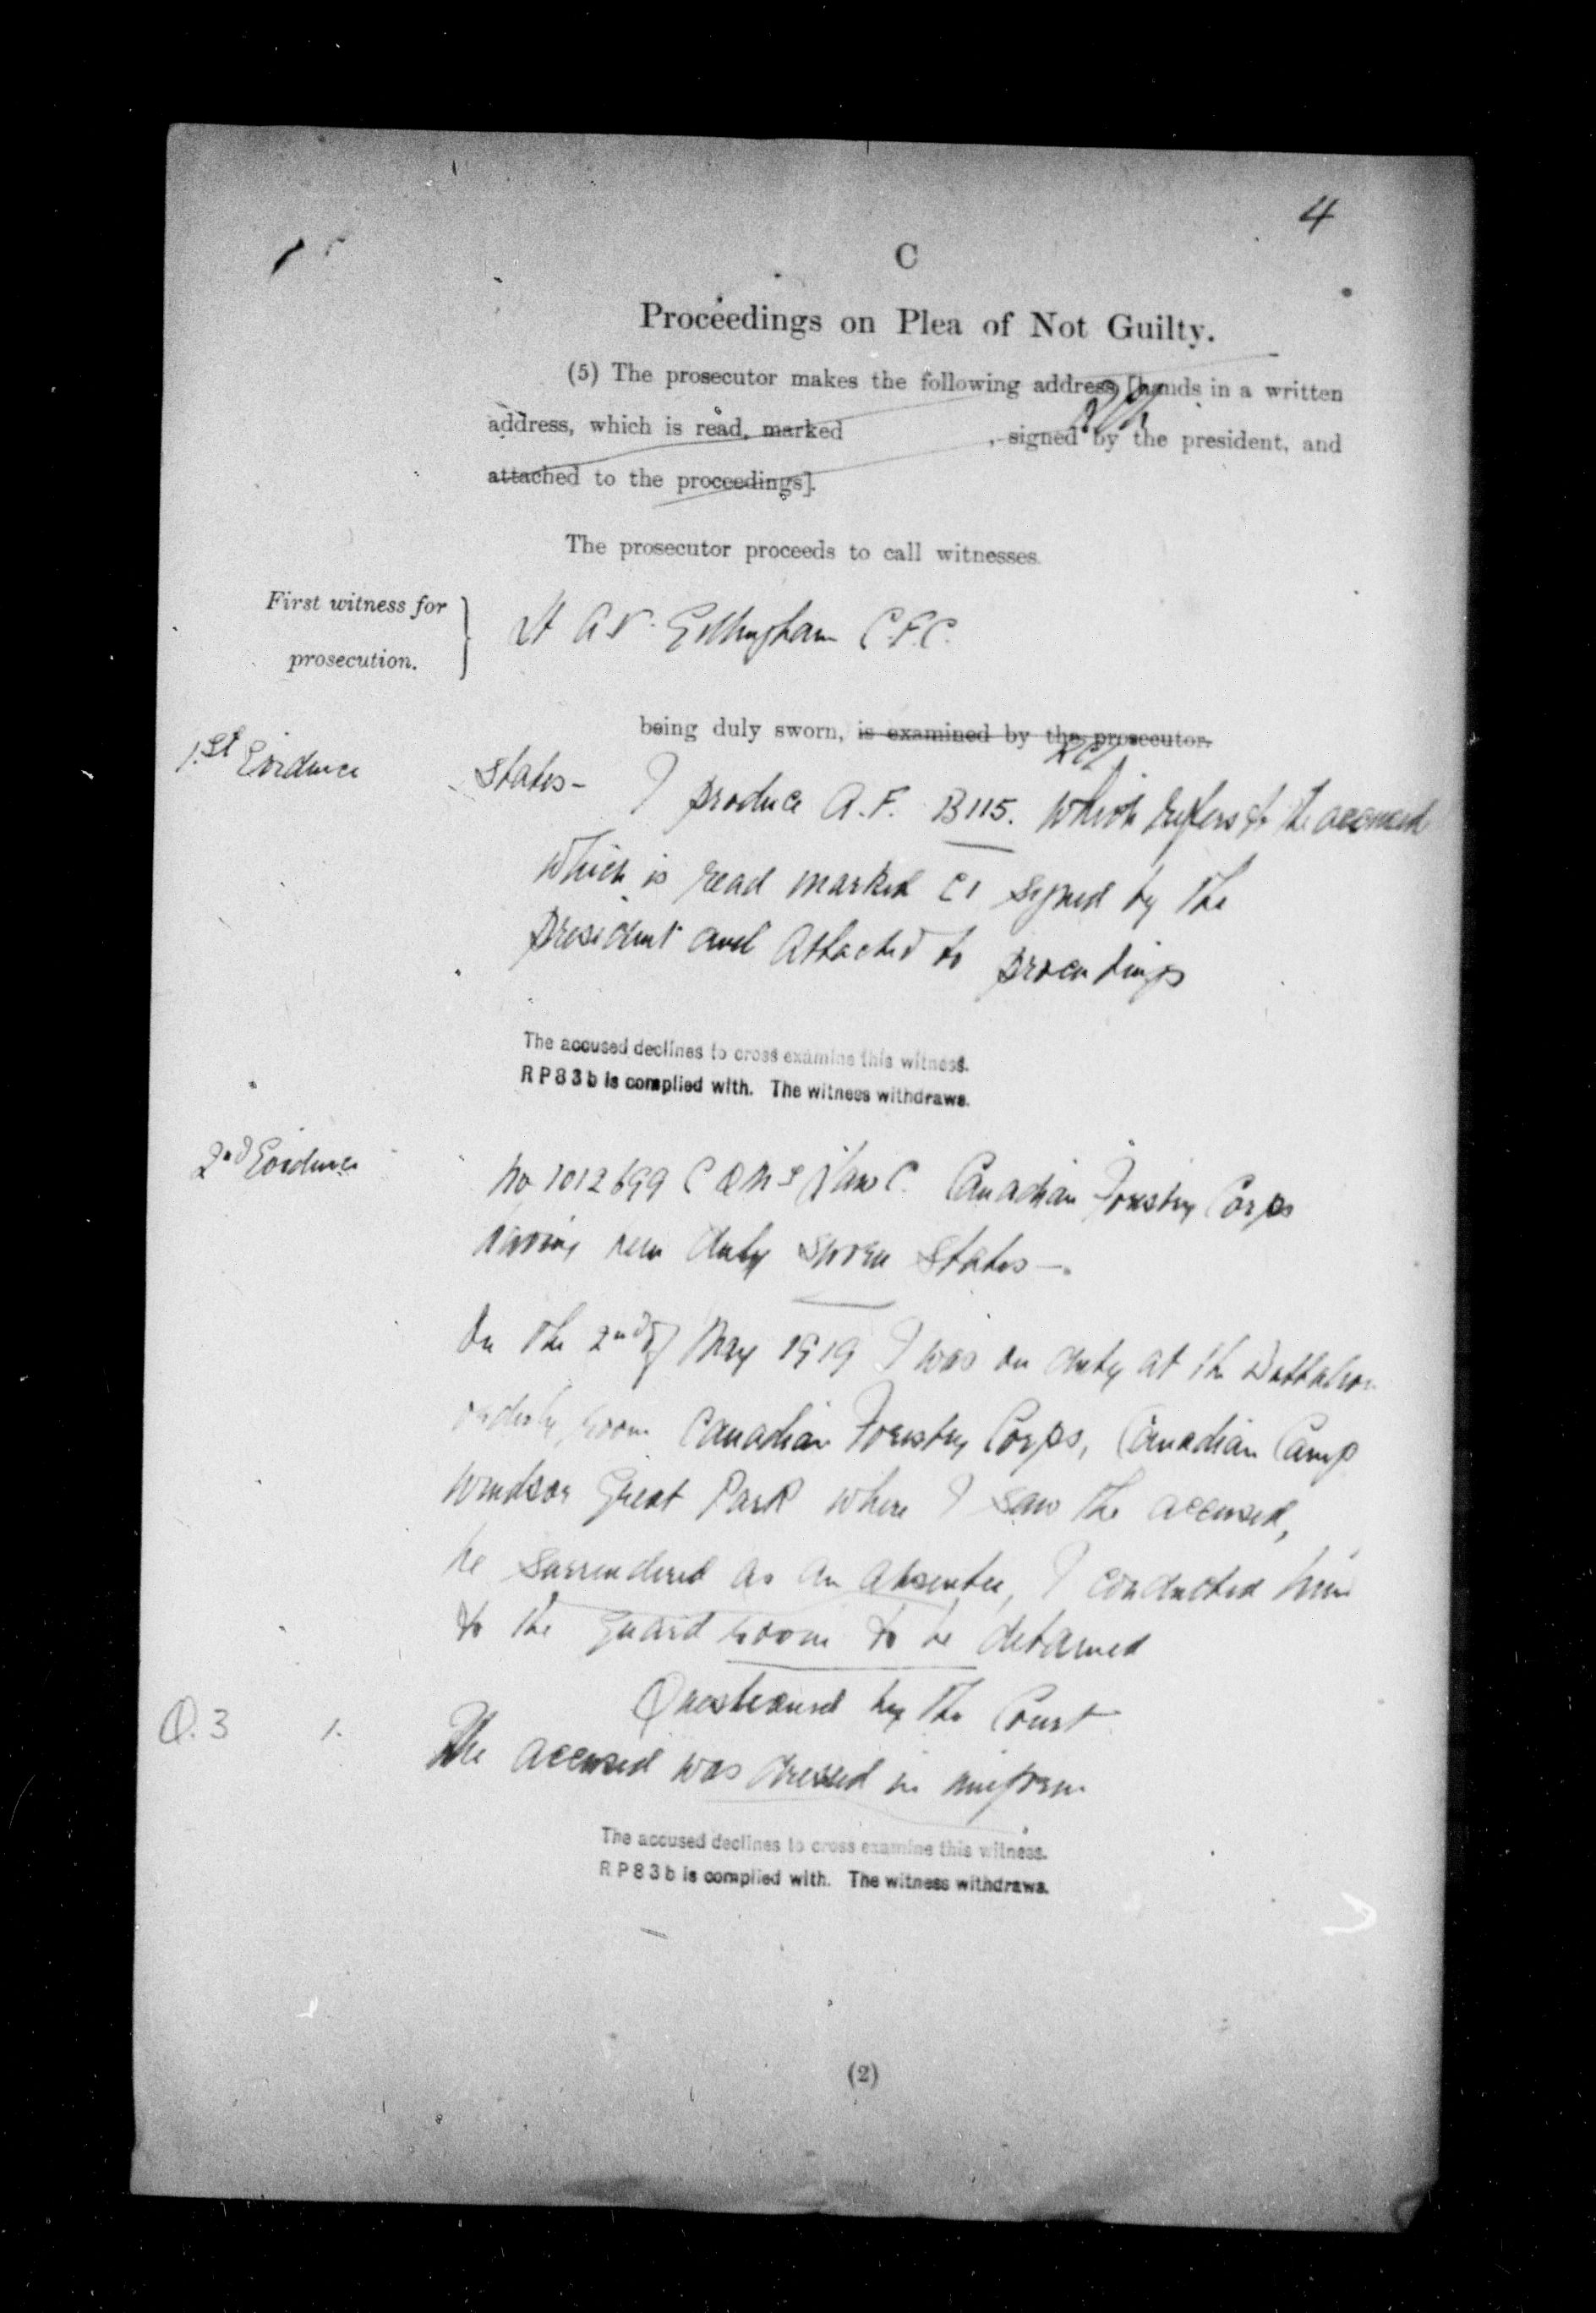 4
C
Proceedings on Plea of Not Guilty.
(5) The prosecutor makes the following address [hands in a written
address, which is read, marked , signed by the president, and
attached to the proceedings].
The prosecutor proceeds to call witnesses.
First witness for
prosecution.
Lt A.V. C.F.C.
being duly sworn, is examined by the prosecutor.
1.st Evidence
States- I produce A.F. B115. which refers to the accused
which is read marked C1 signed by the
president and attached to proceedings
The accused declines to cross examine this witness.
R P 8 3 b is complied with. The witness withdraws.
2nd Evidence
No 1012699 C Q M S C. Canadian Forestry Corps
having been duly sworn states -.
On the 2nd of May 1919 I was on duty at the Battalion
orderly room Canadian Forestry Corps, Canadian Camp
Windsor Great Park where I saw the accused,
he surrendered as an absentee, I conducted him
to the guard room to be detained
Questioned by the Court
Q.3 1. The accused was dressed in uniform
The accused declines to cross examine this witness.
R P 8 3 b is complied with. The witness withdraws.
(2)